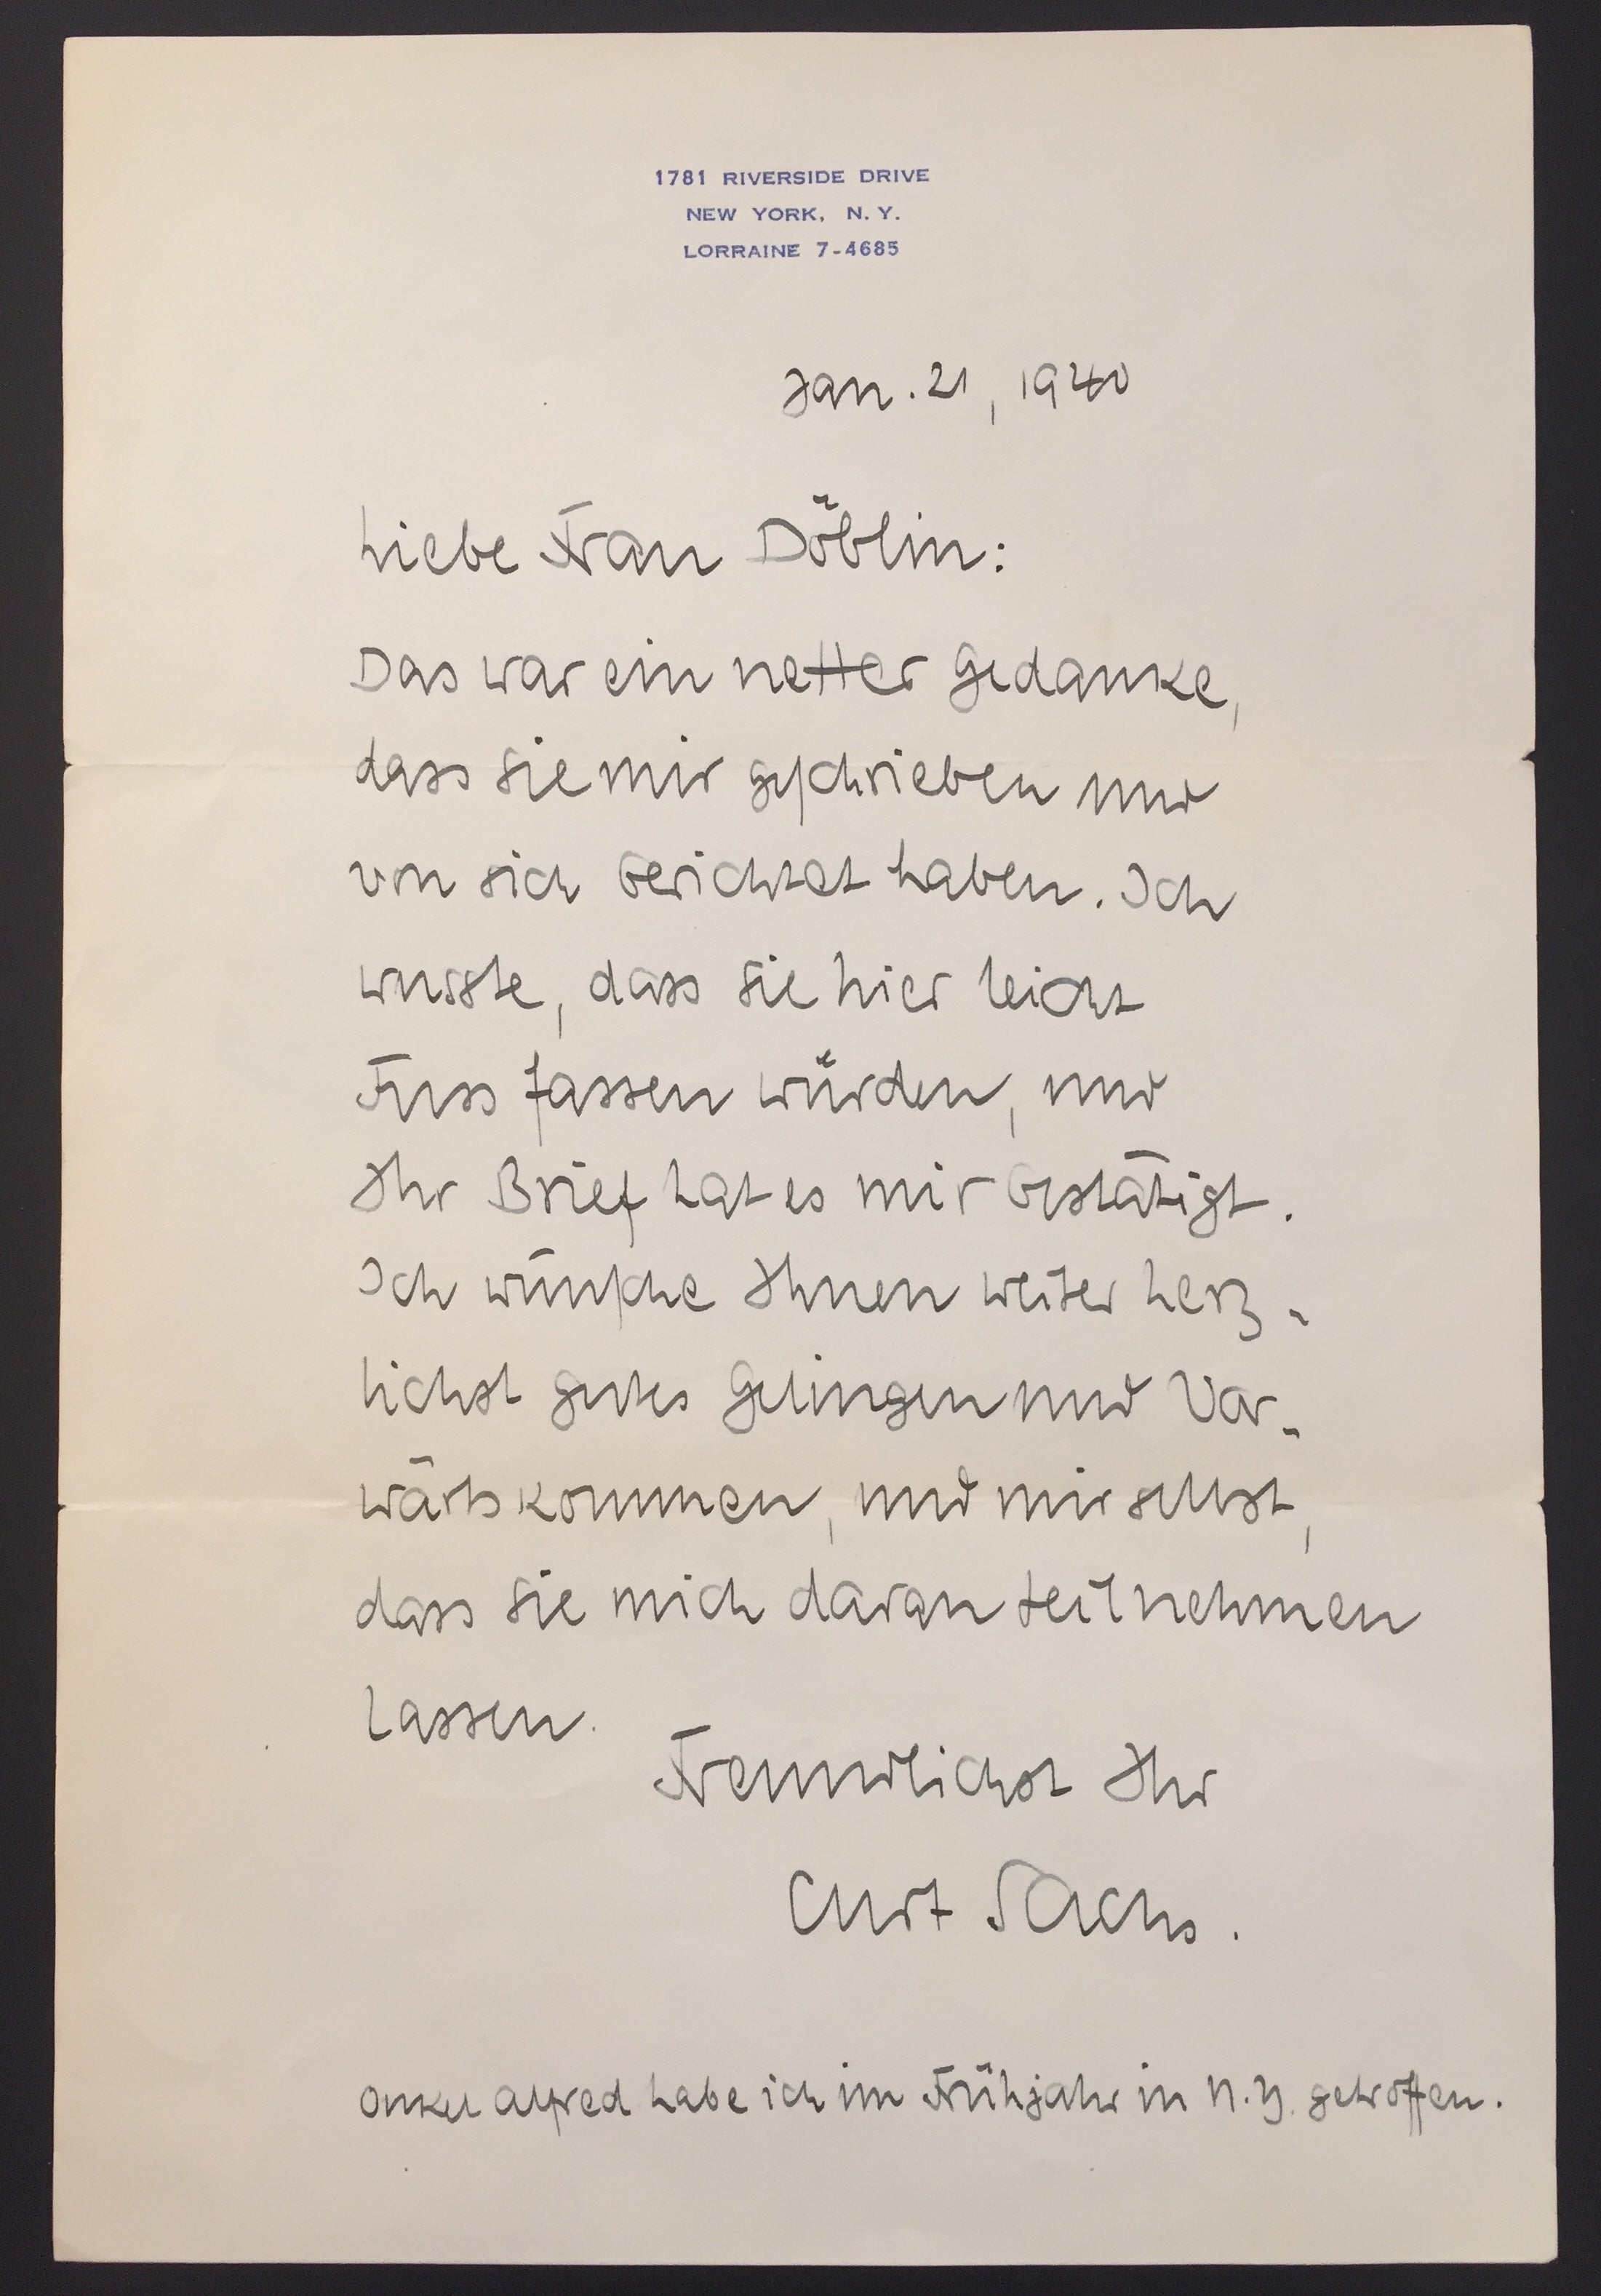 1781 RIVERSIDE DRIVE
NEW YORK, N. Y.
LORRAINE 7-4685
Jan. 21, 1940
Liebe Frau Döblin:
Das war ein netter Gedanke,
dass Sie mir geschrieben und
von sich berichtet haben. Ich
wusste, dass Sie hier leicht
Fuss fassen würden, und
Ihr Brief hat es mir bestätigt.
Ich wünsche Ihnen weiter herz-
lichst gutes Gelingen und Vor-
wärtskommen, und mir selbst,
dass Sie mich daran teilnehmen
lassen.
Freundlichst Ihr
Curt Sachs.
Onkel Alfred habe ich im Frühjahr in N.Y. getroffen.